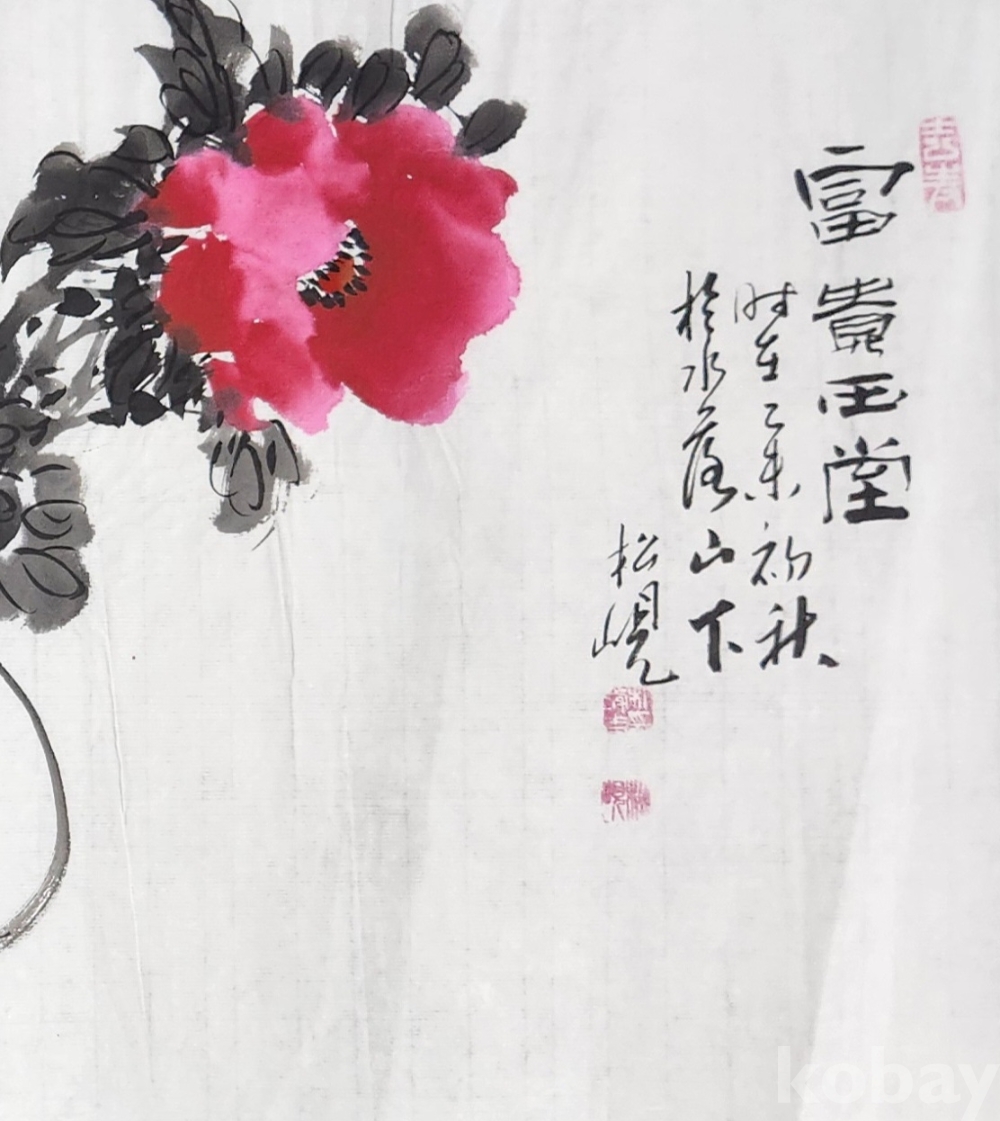 富貴玉堂
时在乙未初秋
於水落山下
松峴
kobay